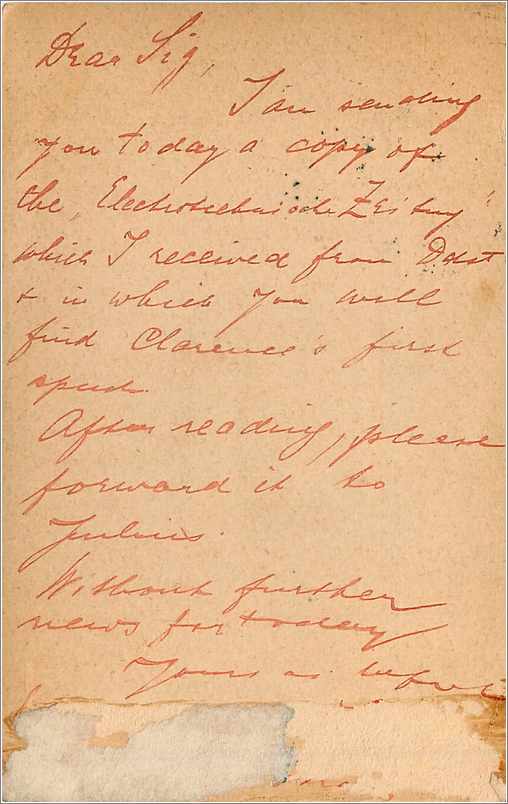 Dear Sig,
I am sending
you today a copy of
the "Electrotechnische Zeitung"
which I received from Dast
& in which you will
find Clarence's first
speech.
After reading, please
forward it to
Julius.
Without further
news for today
Yours as before